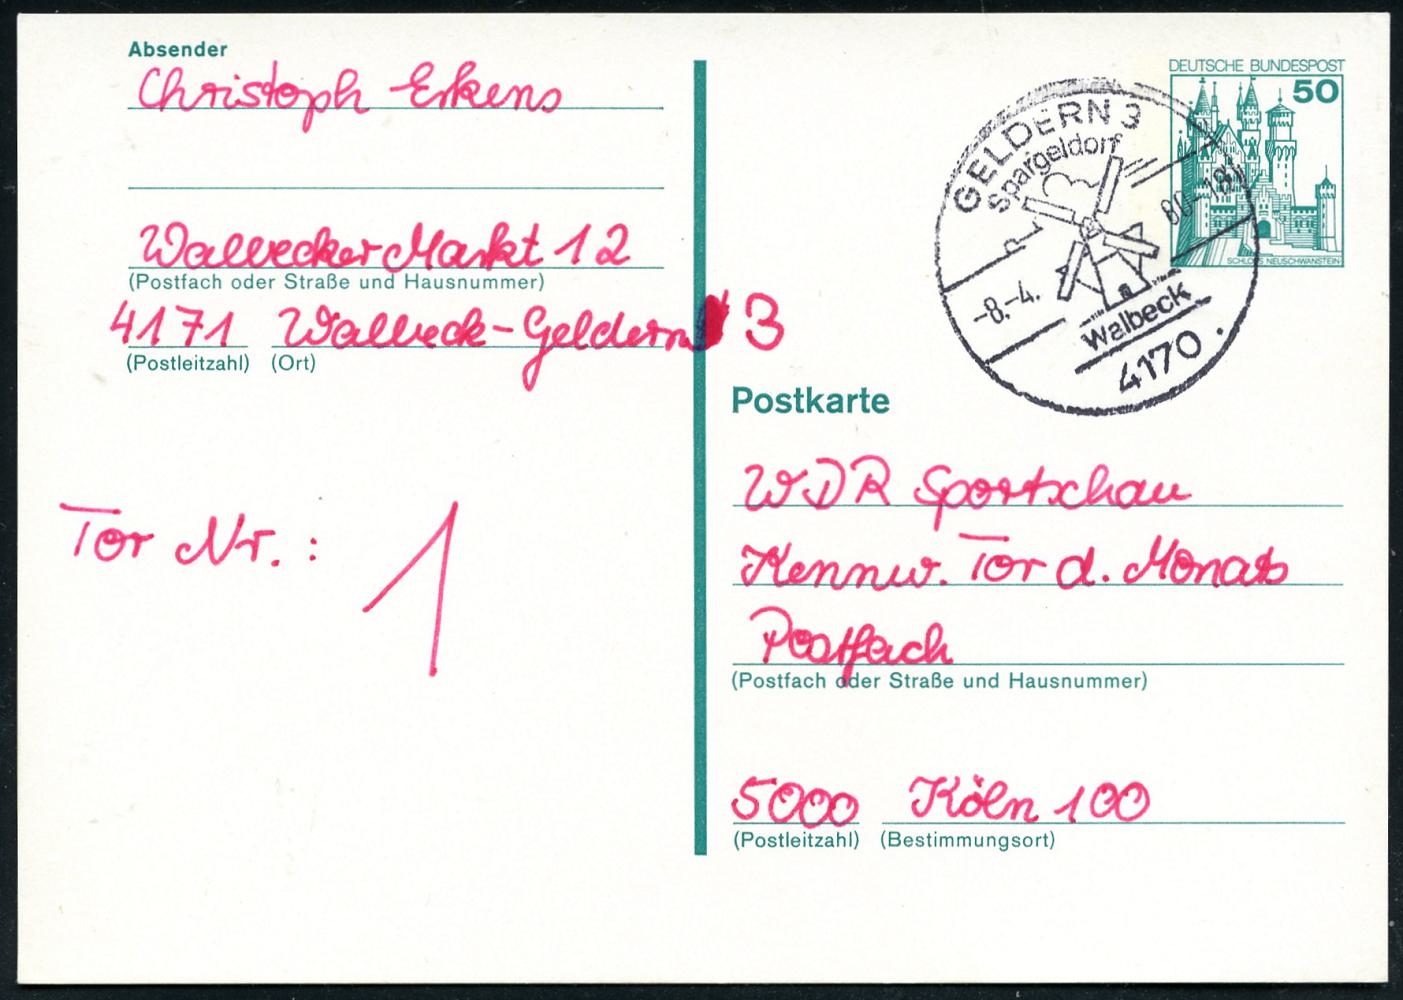 Absender
Christoph Erkens
Walbecker Markt 12
(Postfach oder Straße und Hausnummer)
4171 Walbeck-Geldern 3
(Postleitzahl) (Ort)
Tor Nr.: 1
DEUTSCHE BUNDESPOST
50
SCHLOSS NEUSCHWANSTEIN
GELDERN 3
Spargeldorf
-8.-4. 80-18
Walbeck
4170
Postkarte
WDR Sportschau
Kennw. Tor d. Monats
Postfach
(Postfach oder Straße und Hausnummer)
5000 Köln 100
(Postleitzahl) (Bestimmungsort)